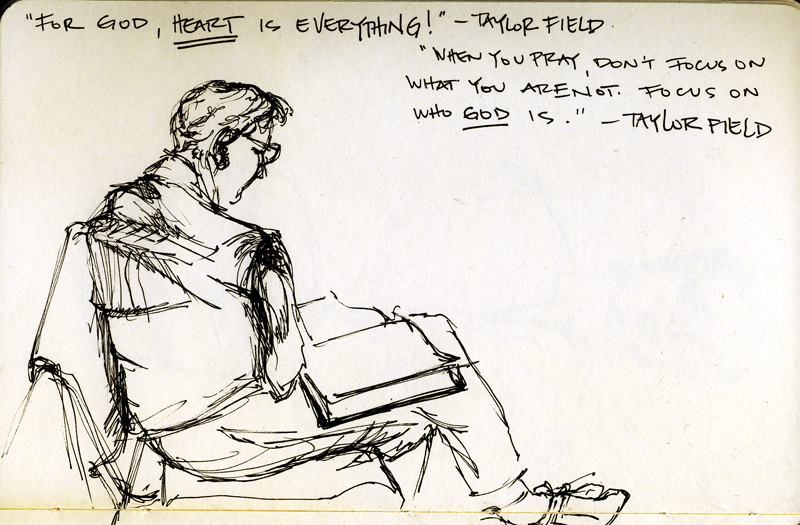 "FOR GOD, HEART IS EVERYTHING!" - TAYLOR FIELD.
"WHEN YOU PRAY, DON'T FOCUS ON
WHAT YOU ARE NOT. FOCUS ON
WHO GOD IS." - TAYLOR FIELD